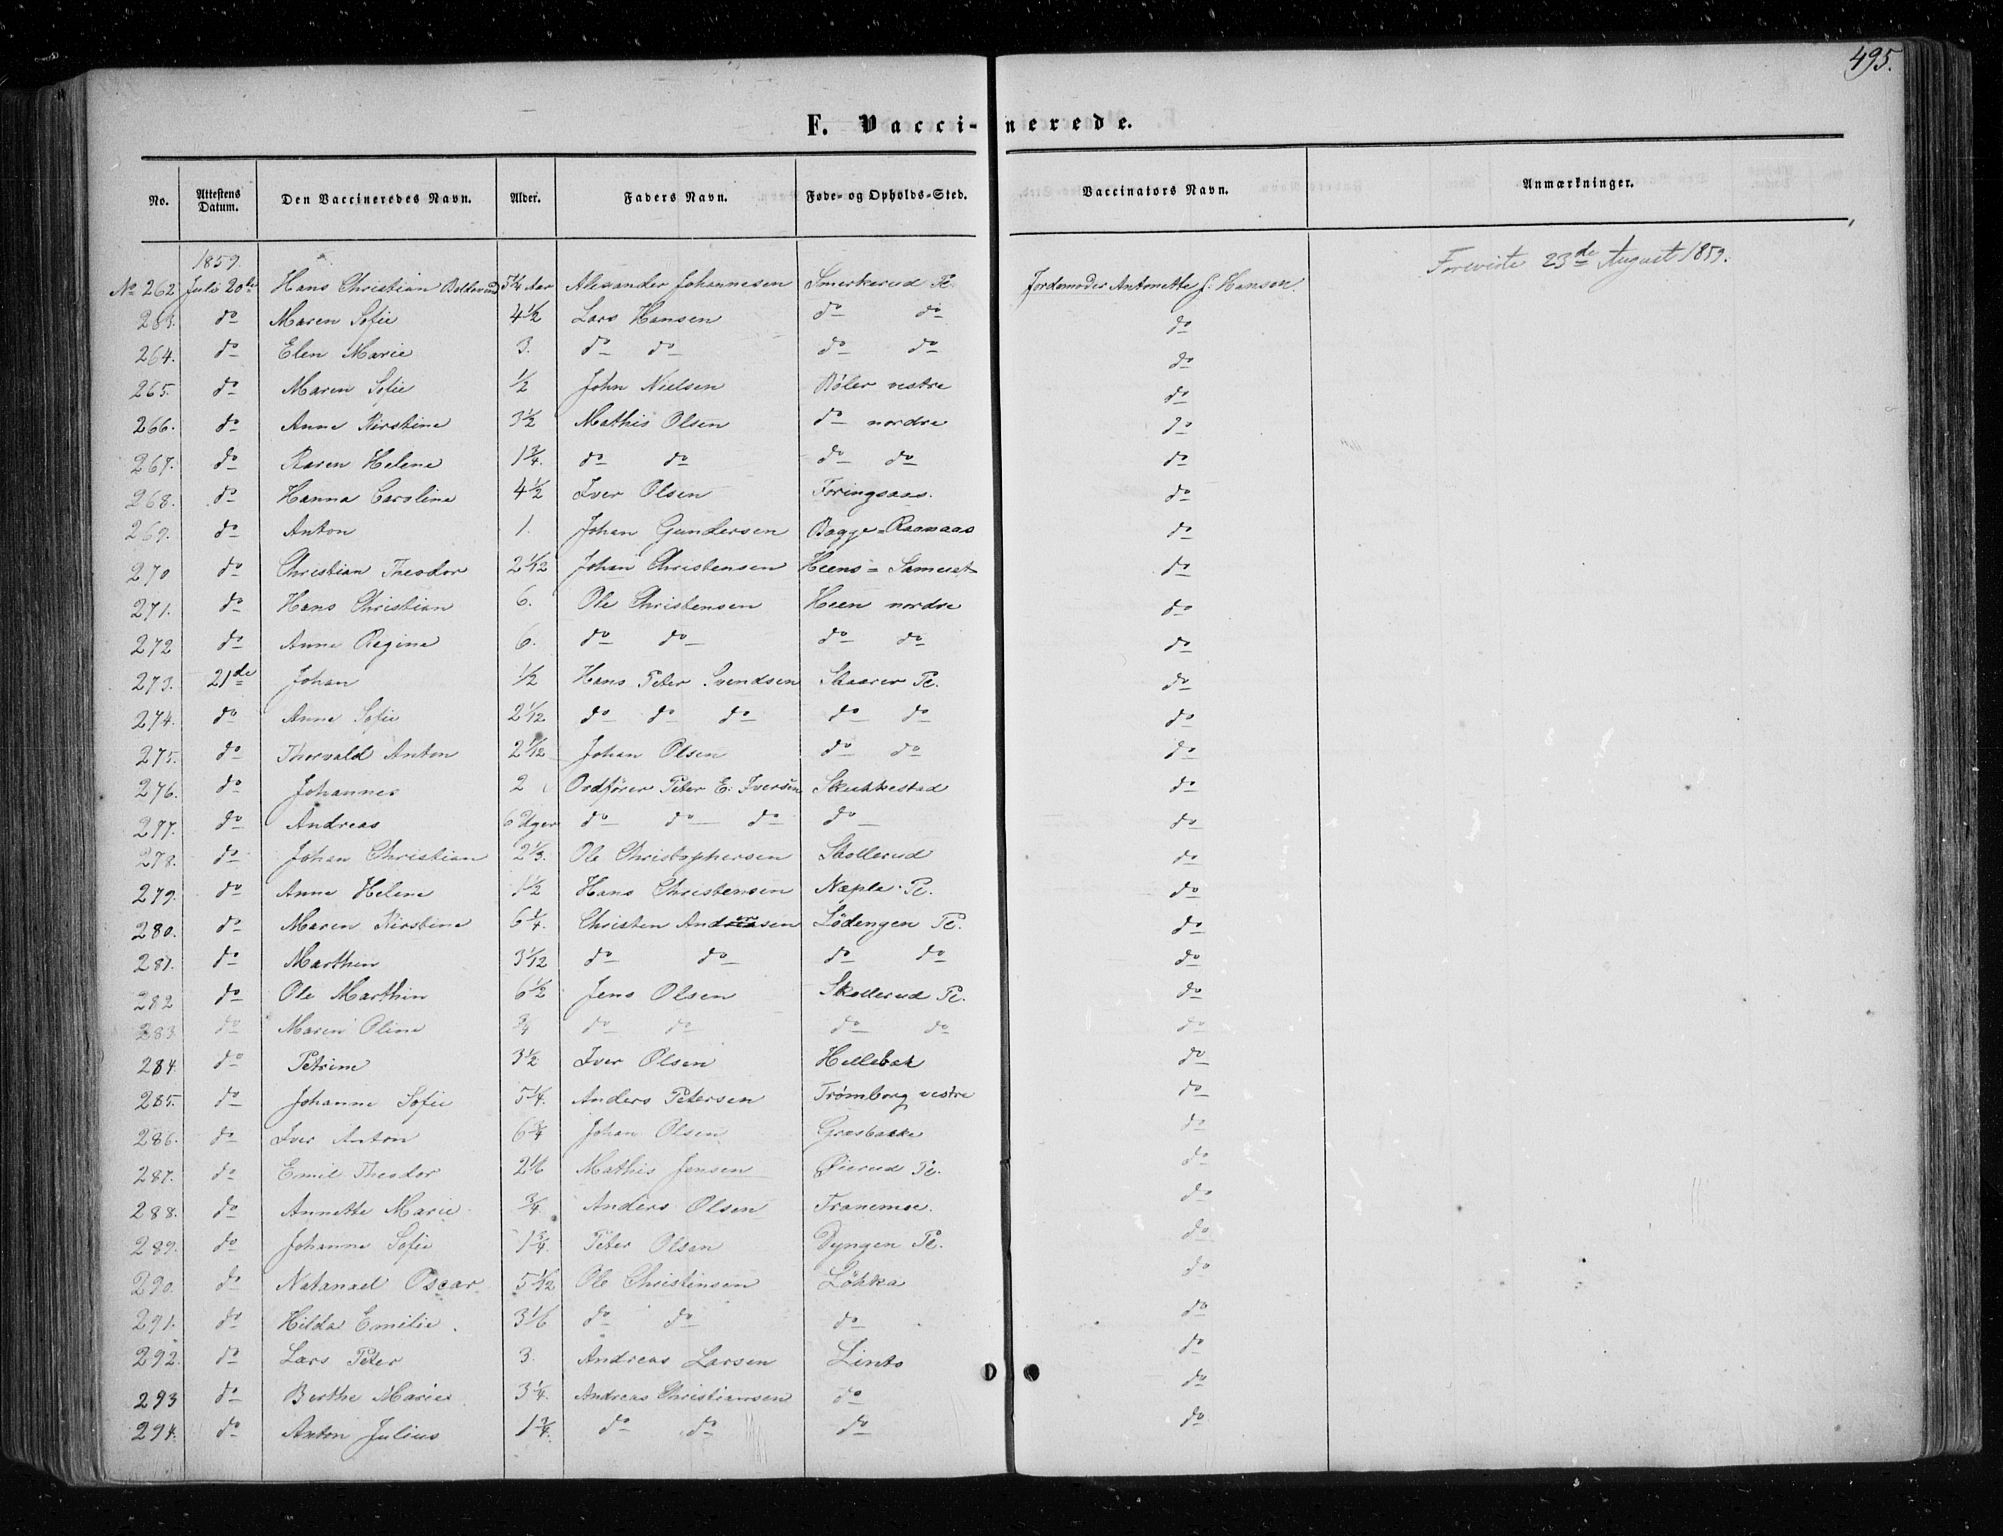 495.
F. Vaccinerede.
No. Attestens Datum. Den Vaccineredes Navn. Alder. Faders Navn. Føde- og Opholds-Sted. Vaccinators Navn. Anmærkninger.
1859. Foreviste 23de August 1859.
No 262 Juli 20de Hans Christian 5¼ Aar Alexander Johannesen Smerkerud Pl. Jordemoder Antonette J. Hansen.
263. do Maren Sofie 4½ Lars Hansen do do do
264. do Elen Marie 3. do do do do do
265. do Maren Sofie ½ John Nielsen Bøler vestre do
266. do Anne Kirstine 3½ Mathis Olsen do nordre do
267. do Karen Helene 1¾. do do do do do
268. do Hanna Caroline 4½ Iver Olsen Foringsaas. do
269. do Anton 1. Johan Gundersen Bagge- do
270 do Christian Theodor 2 1/12 Johan Christensen Heens- do
271. do Hans Christian 6. Ole Christensen Heen nordre do
272 do Anne Regine 6. do do do do do
273. 21de Johan ½ Hans Peter Svendsen Skaarer Pl. do
274. do Anne Sofie 2 1/12 do do do do do do
275. do Thorvald Anton 2 Johan Olsen do do do
276. do Johannes 2 Ordfører Peter E. Iversen Skukkestad do
277. do Andreas 6 Uger do do do do do
278. do Johan Christian 2⅓. Ole Christophersen Skollerud do
279. do Anne Helene 1½ Hans Christensen Næple Pl. do
280. do Maren Kirstine 6¼. Christen Andersen Lödengen Pl. do
281. do Marthin 3 1/12 do do do do do
282 do Ole Marthin 6½ Jens Olsen Skollerud Pl. do
283 do Maren Oline ¾ do do do do do
284. do Petrine 3½. Iver Olsen Hillebæk do
285. do Johanne Sofie 5¼. Anders Petersen Trømborg vestre do
286. do Iver Anton 6¾ Johan Olsen Græsbakke do
287. do Emil Theodor 2⅙ Mathis Jensen Øierud Pl. do
288. do Annette Marie ¾. Anders Olsen Tranemoe. do
289. do Johanne Sofie 1¾. Peter Olsen Dyngen Pl. do
290. do Natanael Oscar 5 1/12 Ole Christensen Løkka do
291. do Hilda Emilie 3⅙ do do do do
292. do Lars Peter 3. Andreas Larsen Linto do
293 do Berthe Marie 3¼. Andreas Christiansen do do
294. do Anton Julius 1¾. do do do do